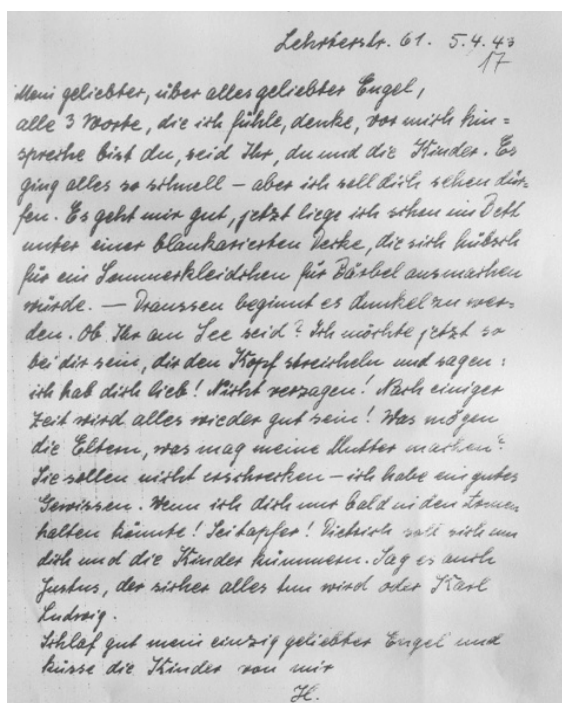 Lehrterstr. 61. 5.4.43
17
Mein geliebter, über alles geliebter Engel,
alle 3 Worte, die ich fühle, denke, vor mich hin=
spreche bist du, seid Ihr, du und die Kinder. Es
ging alles so schnell – aber ich soll dich sehen dür=
fen. Es geht mir gut, jetzt liege ich schon im Bett
unter einer blaukarierten Decke, die sich hübsch
für ein Sommerkleidchen für Bärbel ausmachen
würde. — Draussen beginnt es dunkel zu wer=
den. Ob Ihr am See seid? Ich möchte jetzt so
bei dir sein, dir den Kopf streicheln und sagen:
ich hab dich lieb! Nicht verzagen! Nach einiger
Zeit wird alles wieder gut sein! Was mögen
die Eltern, was mag meine Mutter machen?
Sie sollen nicht erschrecken – ich habe ein gutes
Gewissen. Wenn ich dich nur bald in den Armen
halten könnte! Sei tapfer! Dietrich soll sich um
dich und die Kinder kümmern. Sag es auch
Justus, der sicher alles tun wird oder Karl
Ludwig.
Schlaf gut mein einzig geliebter Engel und
küsse die Kinder von mir
H.